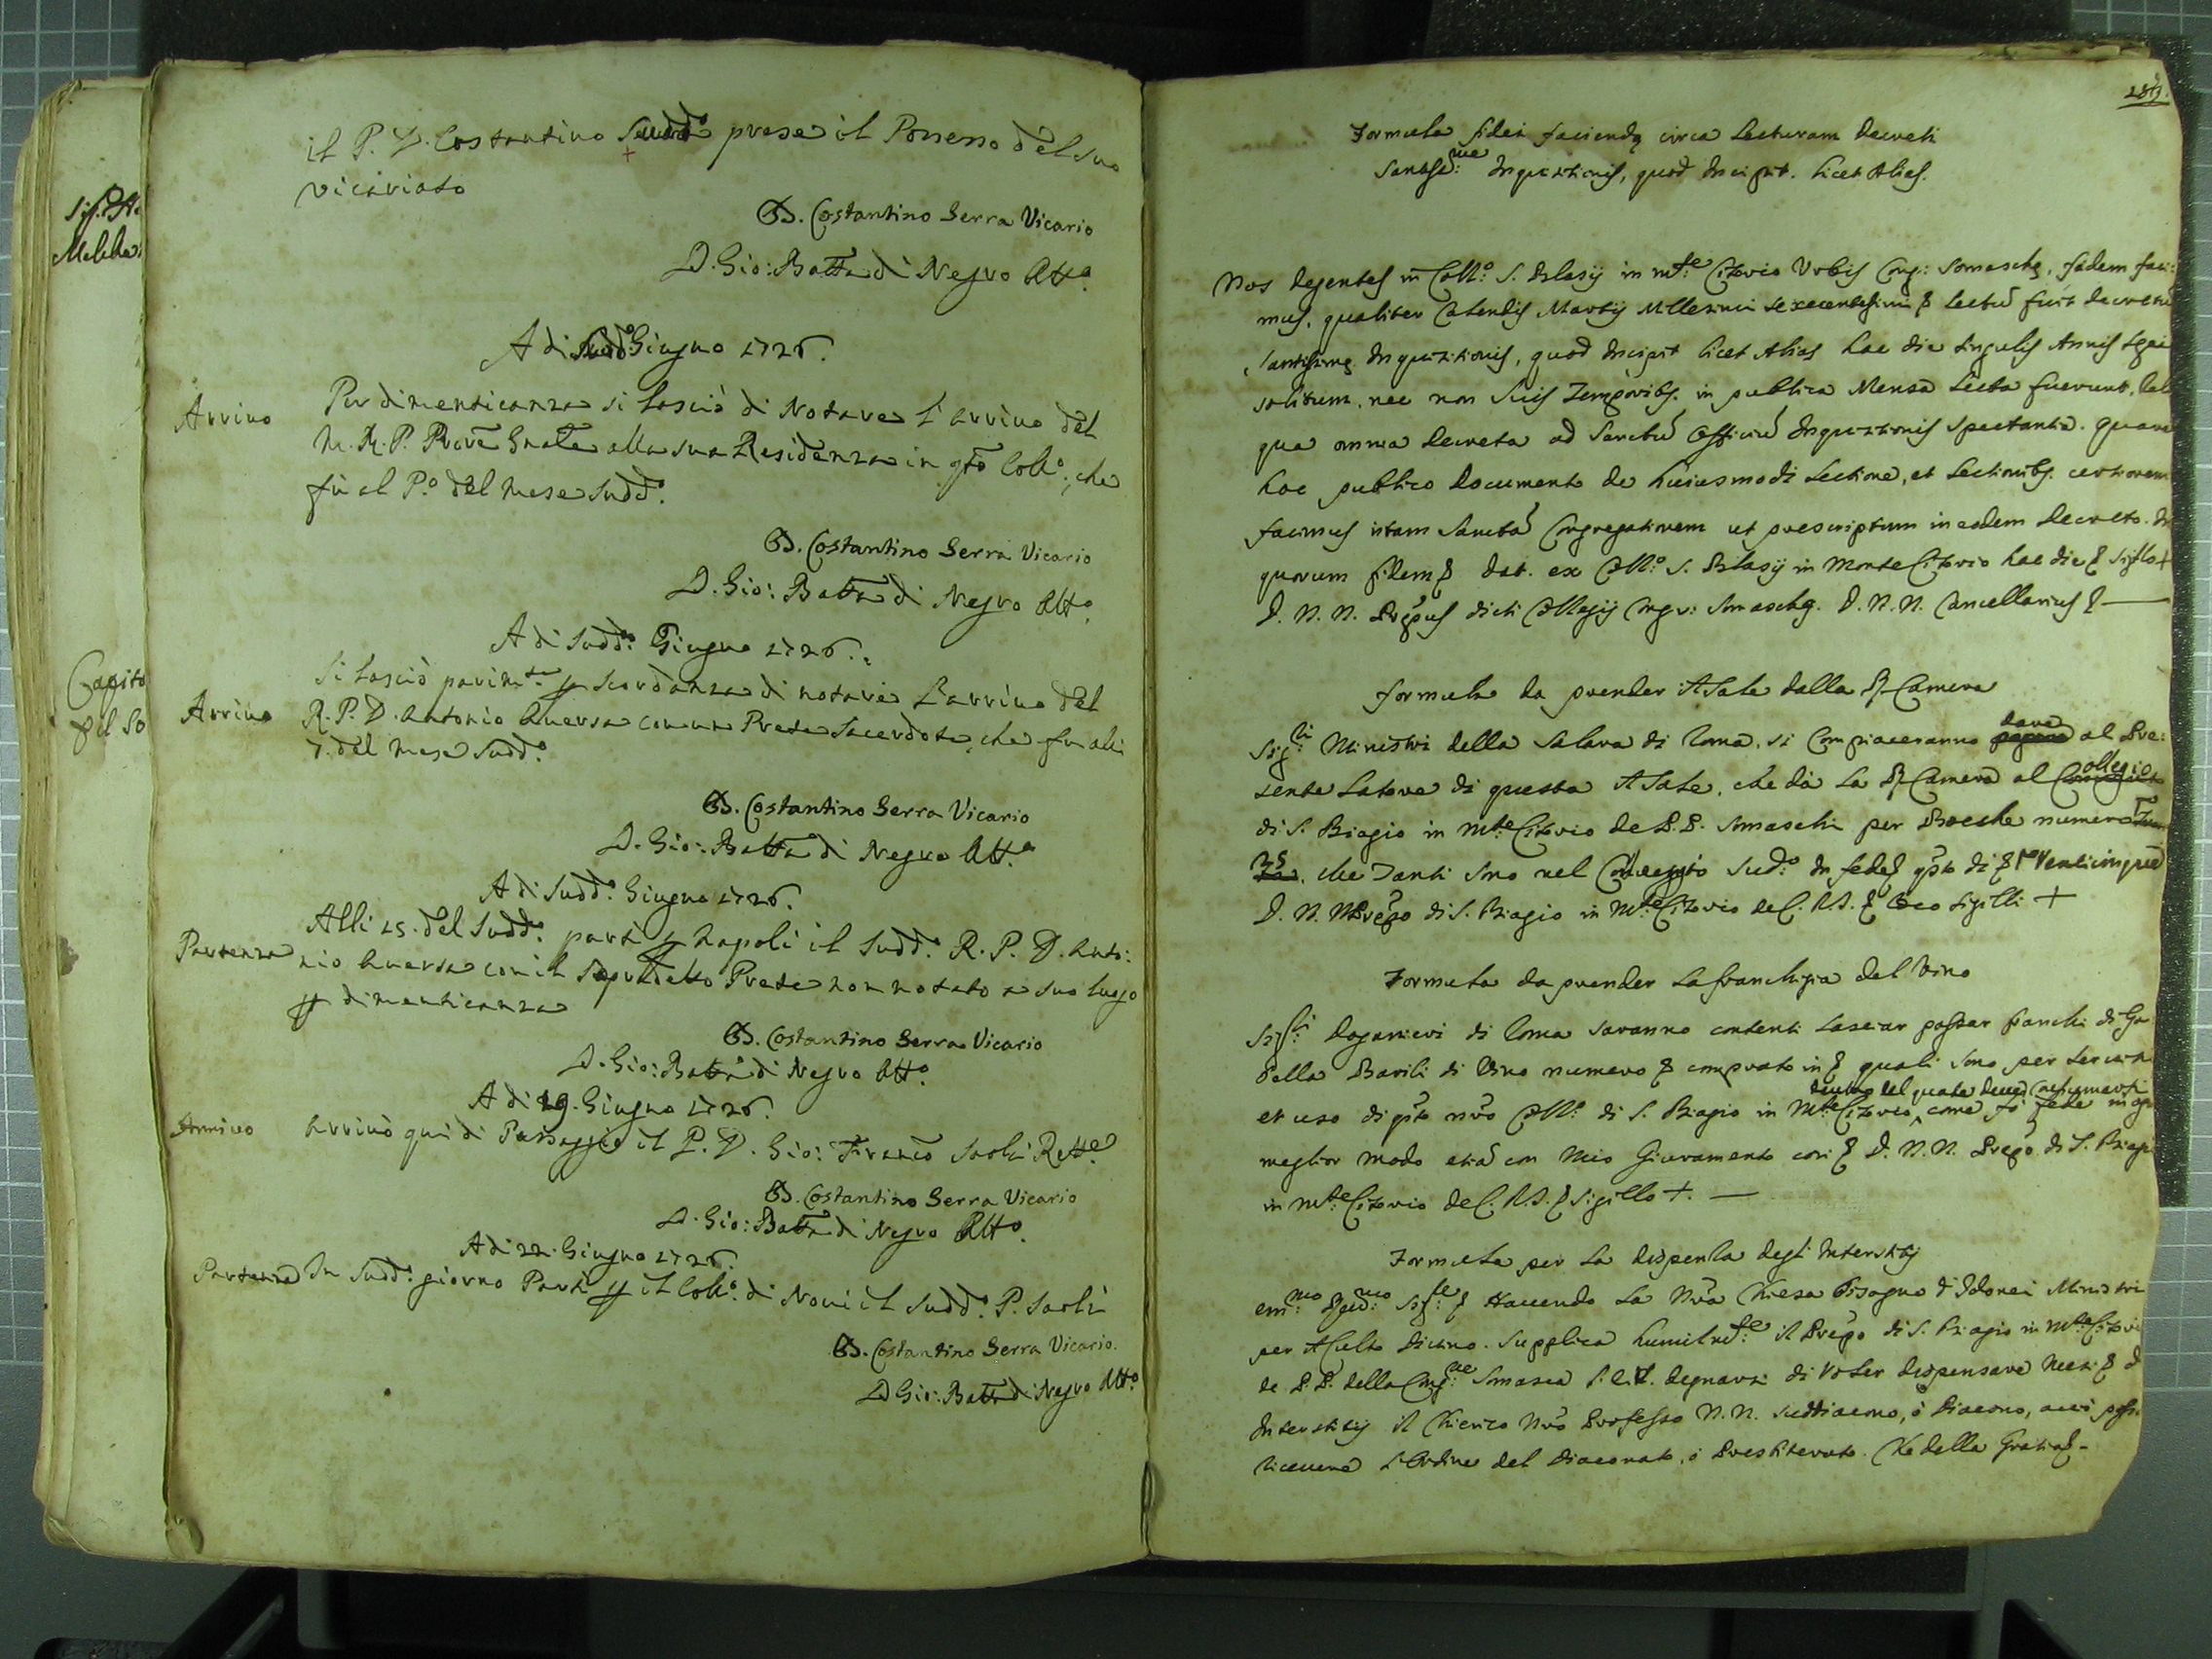 il P. D. Costantino Sudd.º prese il Possesso del suo
vicariato
D. Costantino Serra Vicario
D. Gio: Batta di Negro Att.º
A di Sudd.º Giugno 1726.
Arrivo
Per dimenticanza si lasciò di Notare l'arrivo del
M. R. P. Pre Gnale alla sua Residenza in qto Coll.º, che
fù al P.º del mese Sudd.º
D. Costantino Serra Vicario
D. Gio: Batta di Negro Att.º
A di Sudd.º Giugno 1726.
Arrivo
Si lasciò parim.te p scordanza di notare l'arrivo del
R. P. D. Antonio Aversa con un Prete Sacerdote, che fu alli
7. del mese Sudd.º
D. Costantino Serra Vicario
D. Gio: Batta di Negro Att.º
A di Sudd.º Giugno 1726.
Partenza
Alli 15. del Sudd.º partì p Napoli il Sudd.º R. P. D. Anto:
nio Aversa con il Sopradetto Prete non notato a suo luogo
p dimenticanza
D. Costantino Serra Vicario
D. Gio: Batta di Negro Att.º
A di 19. Giugno 1726.
Arrivo
Arrivò qui di Passaggio il P. D. Gio: Franco Saoli Rett.e
D. Costantino Serra Vicario
D. Gio: Batta di Negro Att.º
A di 22. Giugno 1726.
Partenza
In Sudd.º giorno Partì p il Coll.º di Novi il Sudd.º P. Saoli
D. Costantino Serra Vicario.
D. Gio: Batta di Negro Att.º
Formula fidei faciendę circa Lecturam Decreti
Inquisitionis, quod Incipit. Licet Alias.
Nos degentes in Coll.º S. Blasij in m.te Citorio Urbis Cong: Somaschę, fidem faci:
mus, qualiter Calendis Martij Millesimi sexcentesimi & lectū fuit decretū
Santissimę Inquisitionis, quod Incipit Licet Alias hac die singulis Annis legi
solitum, nec non suis Temporibs. in publica Mensa Lecta fuerunt,
que omnia Decreta ad Sanctū Officiū Inquisitionis spectantia. quare
hoc publico Documento de huiusmodi Lectione, et Lectionibs. certiorem
facimus istam Sanctā Congregationem ut prescriptum in eodem Decreto. In
quorum fidem & dat. ex Coll.º S. Blasij in Monte Citorio hac die &
D. N. N. Pręptus dicti Collegij Cong.: Somaschę. D. N. N. Cancellarius &
Formula da prender il Sale dalla R. Camera
Sig.ri Ministri della Salara di Roma, si Compiaceranno dare al Pre:
sente Latore di questa il Sale, che dà la R. Camera al Collegio
di S. Biagio in m.te Citorio de P.P. Somaschi per Bocche numero
25. che Tanti sono nel Collegio Sud.º In fede & qsto di & Venticinque
D. N. N. Prepo di S. Biagio in M.te Citorio de C. R. S. & Loco Sigilli +
Formula da prender La franchigia del Vino
Sig.ri Doganieri di Roma saranno contenti lasciar passar franchi di Ga:
bella Barili di Vino numero & comprato in & quali sono per servizio
et uso di qsto nro Coll.º di S. Biagio in M.te Citorio, come fo fede in ogni
meglior modo etiā con Mio Giuramento così & D. N. N. Prepo. di S. Biagio
in M.te Citorio de C. R. S. & Sigillo +.
Formula per La dispensa degl'Interstitij
Em.mo R.mo Sig.re & Havendo La Nrā Chiesa Bisogno d'Idonei Ministri
per il Culto Divino. Supplica humilm.te il Prepo di S. Biagio in M.te Citorio
de P.P. della Cong.ne Somasca degnarsi di Voler dispensare
Interstitij il Chierico Nro Professo N. N. suddiacono, ò Diacono, acciò possi
ricevere L'Ordine del Diaconato, ò Presbiterato. Che della Gratia &.